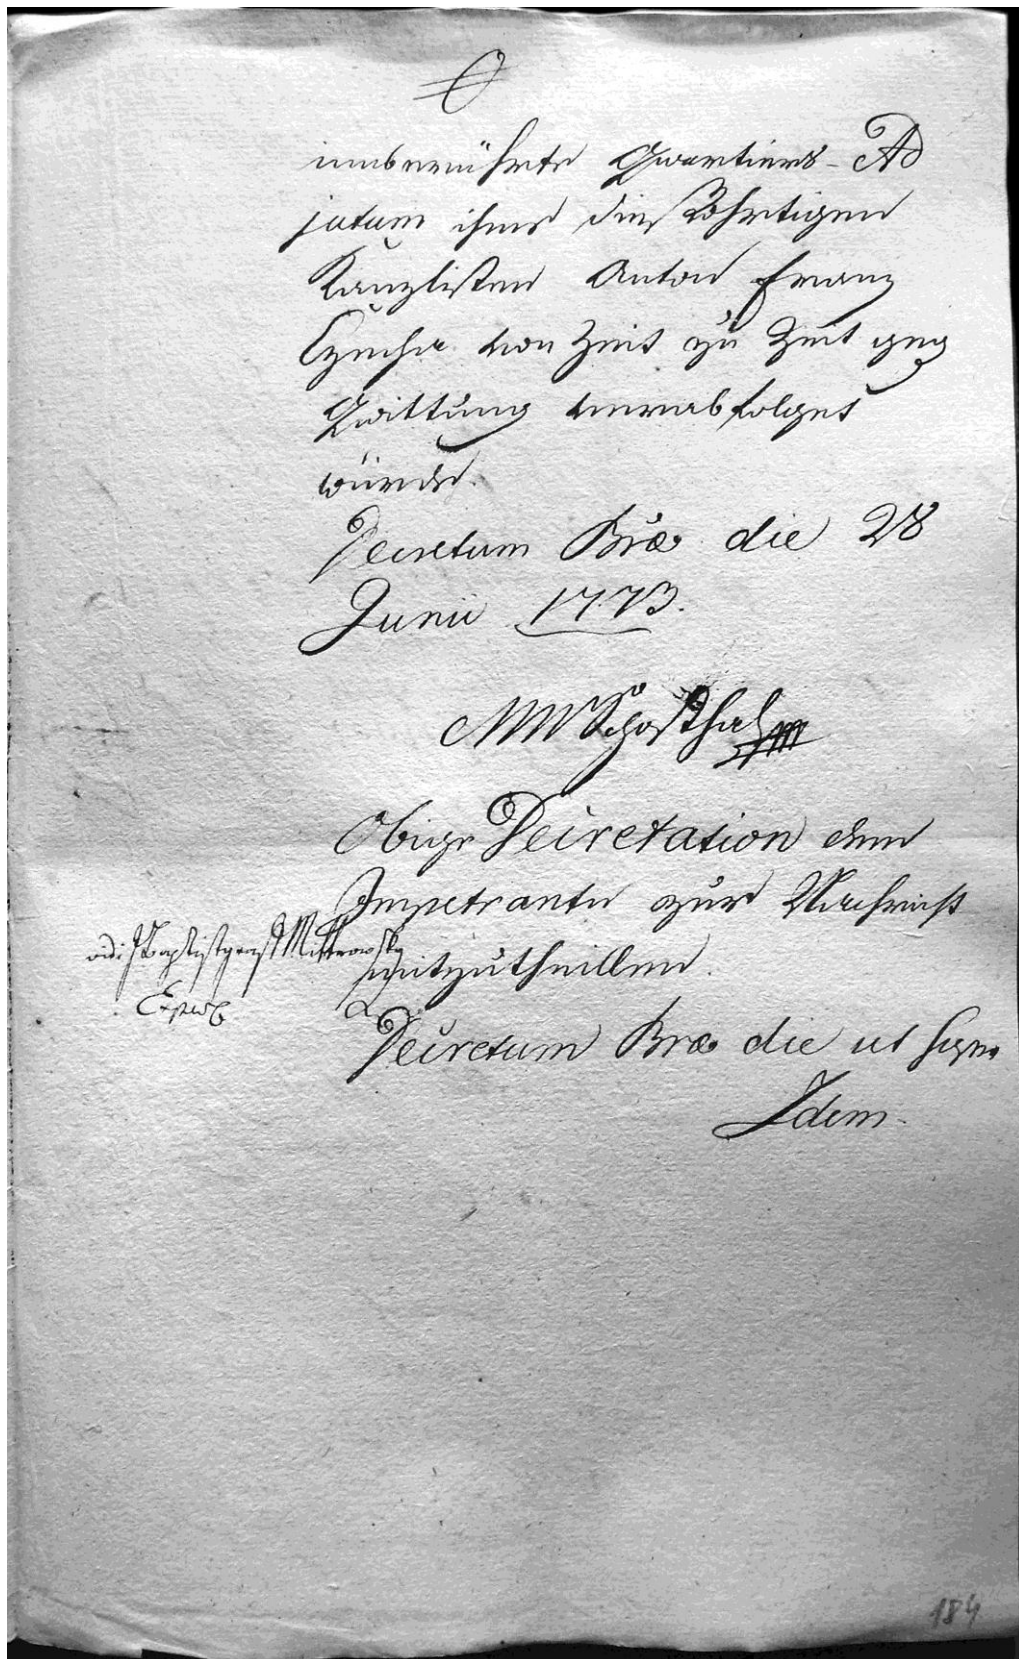 innberührte Quartiers-Ad
jutum ihme diesohrtigen
Kanzlisten Anton Franz
Czucha von Zeit zu Zeit geg
Quittung verabfolget
würde.
Decretum Bræ die 28
Junii 1773.
Obige Decretation dem
Impetranten zur Nachricht
mitzutheillen.
Decretum Bræ die ut supra
Idem
184